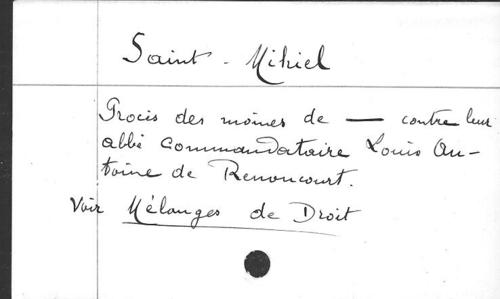 Saint-Mihiel
Procès des moines de — contre leur
abbé commandataire Louis An-
toine de Renoncourt.
Voir Mélanges de Droit